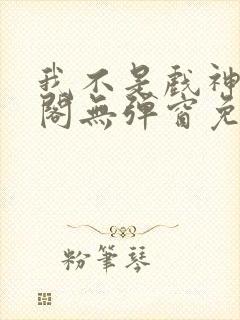 我不是戲神
閣無彈窗免
粉筆琴